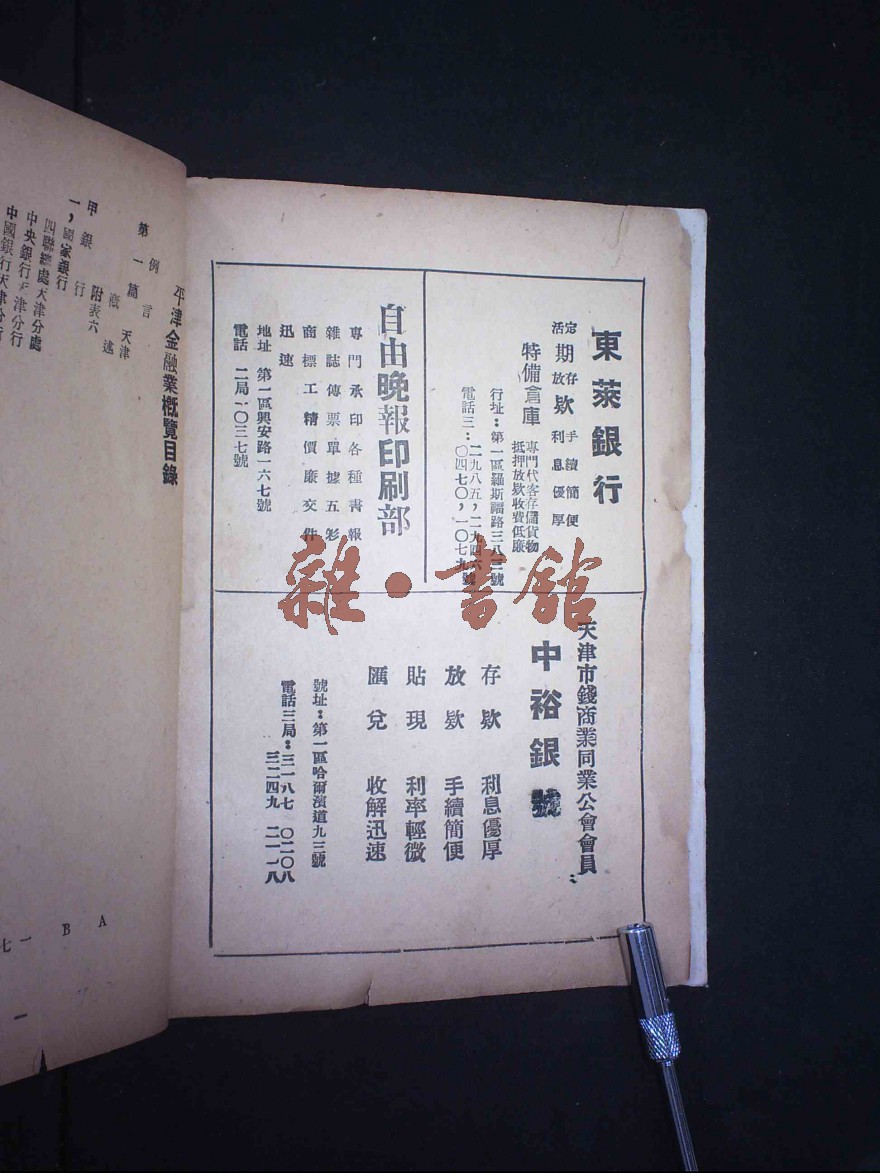 東萊銀行
定活期存放欵
手續簡便
利息優厚
特備倉庫
專門代客存儲貨物
抵押放欵收費低廉
行址：第一區羅斯福路三八三號
電話三：二九八五，二九四六
〇四七〇，一〇七九號
自由晚報印刷部
專門承印各種書報
雜誌傳票單據五彩
商標工精價廉交件
迅速
地址 第一區興安路一六七號
電話 二局一〇三七號
天津市錢商業同業公會會員
中裕銀號
存欵 利息優厚
放欵 手續簡便
貼現 利率輕微
匯兌 收解迅速
號址：第一區哈爾濱道九三號
電話三局：三一八七 〇二〇八
三二四九 二一一八
平津金融業概覽目錄
例言
第一篇 天津
概述
附表六
甲 銀行
一，國家銀行
四聯總處天津分處
中央銀行天津分行
中國銀行天津分行
A
B
一
七
一
雜·書館